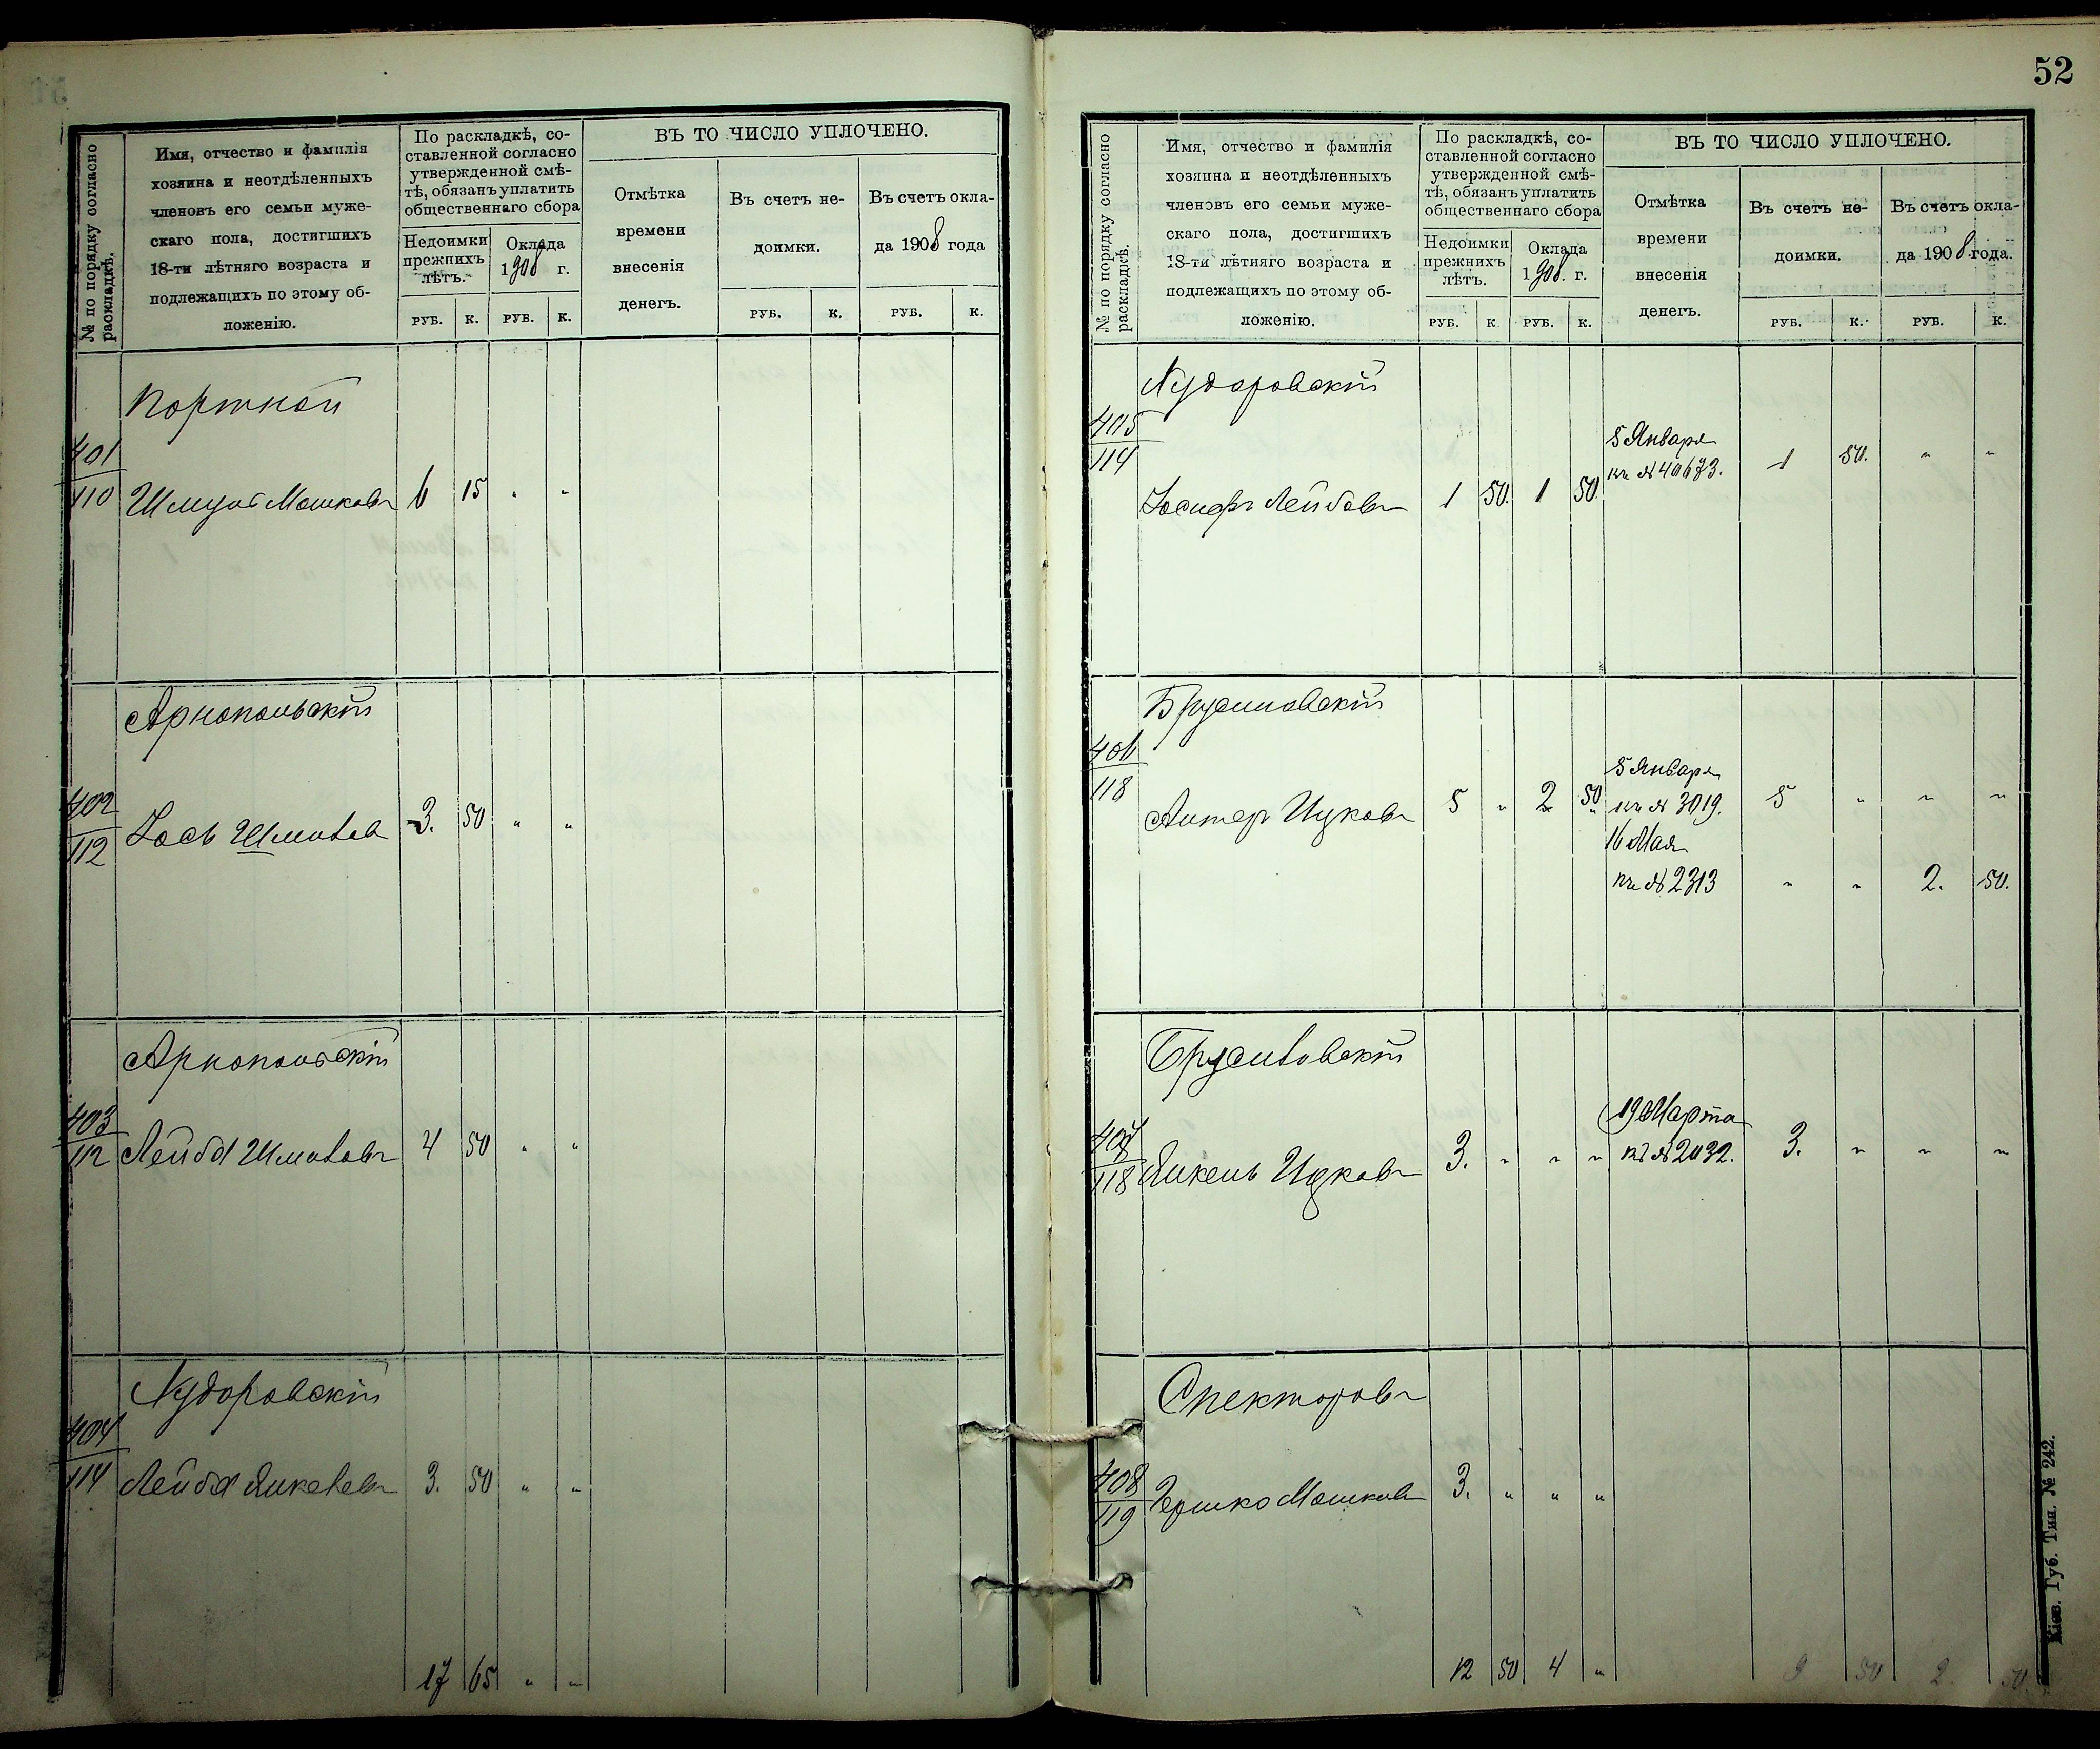 № по порядку согласно раскладкѣ.
Имя, отчество и фамилія
хозяина и неотдѣленныхъ
членовъ его семьи муже-
скаго пола, достигшихъ
18-ти лѣтняго возраста и
подлежащихъ по этому об-
ложенію.
По раскладкѣ, со-
ставленной согласно
утвержденной смѣ-
тѣ, обязанъ уплатить
общественнаго сбора
Недоимки
прежнихъ
лѣтъ.
Оклада
1908 г.
ВЪ ТО ЧИСЛО УПЛОЧЕНО.
Отмѣтка
времени
внесенія
денегъ.
Въ счетъ не-
доимки.
Въ счетъ окла-
да 1908 года
РУБ. К. РУБ. К. РУБ. К. РУБ. К.
Портной
401
110 Шмуль Мошковъ 6 15 " "
Арнопольскій
402
112 Іось Шмиловъ 3. 50 " "
Арнопольскій
403
112 Лейба Шмиловъ 4 50 " "
Худоровскій
404
114 Лейба Янкелевъ 3. 50 " "
17 65 " "
52
№ по порядку согласно раскладкѣ.
Имя, отчество и фамилія
хозяина и неотдѣленныхъ
членовъ его семьи муже-
скаго пола, достигшихъ
18-ти лѣтняго возраста и
подлежащихъ по этому об-
ложенію.
По раскладкѣ, со-
ставленной согласно
утвержденной смѣ-
тѣ, обязанъ уплатить
общественнаго сбора
Недоимки
прежнихъ
лѣтъ.
Оклада
1908. г.
ВЪ ТО ЧИСЛО УПЛОЧЕНО.
Отмѣтка
времени
внесенія
денегъ.
Въ счетъ не-
доимки.
Въ счетъ окла-
да 1908 года.
РУБ. К РУБ. К. РУБ. К. РУБ. К.
Худоровскій
405
114 Іосифъ Лейбовъ 1 50. 1 50.
5 Января
кв № 40673. 1 50. " "
Брусиловскій
406
118 Алтеръ Ицковъ 5 " 2 50
5 Января
кв № 3019. 5 " " "
16 Мая
кв № 2313 " " 2. 50.
Брусиловскій
407
118 Янкель Ицковъ 3. " " "
19 Марта
кв № 2032. 3. " " "
Спекторовъ
408
119 Гершко Мошковъ 3. " " "
12 50 4 " 9 50 2. 50.
Кіев. Губ. Тип. № 242.